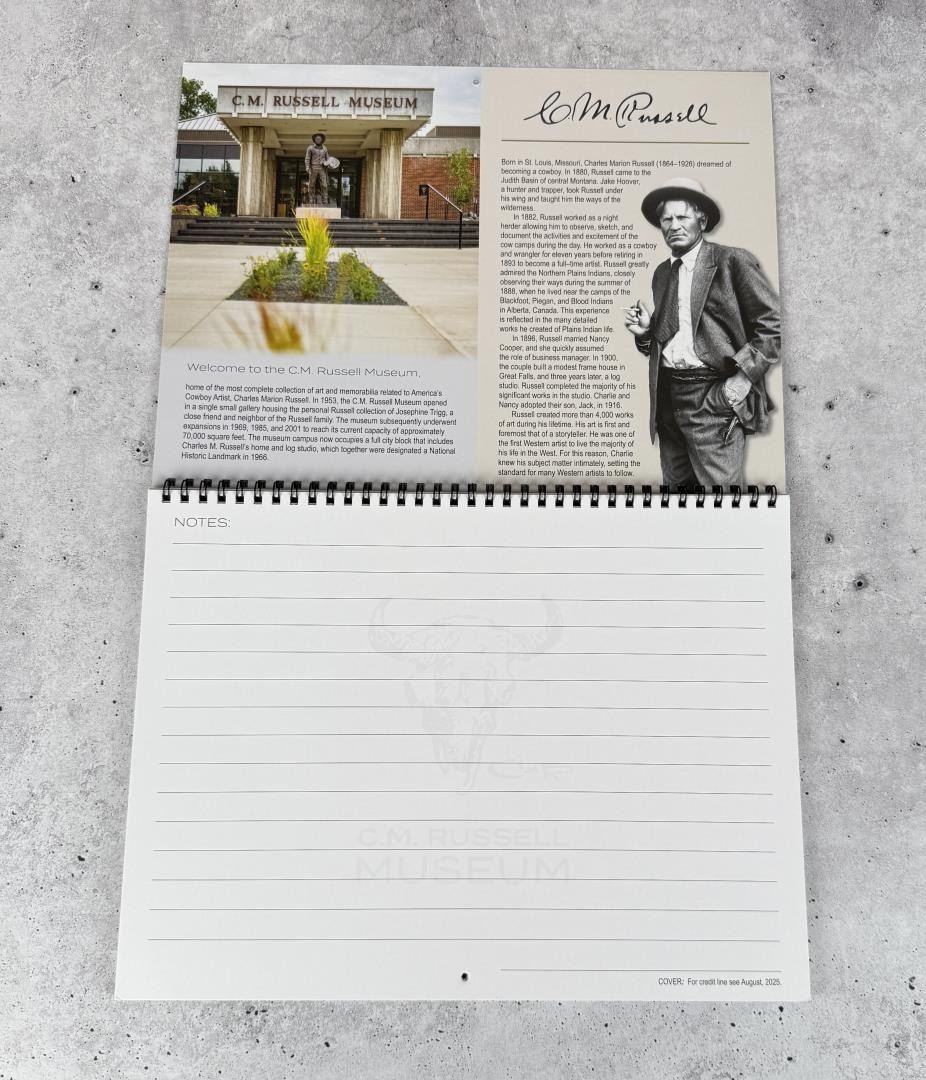 C.M. RUSSELL MUSEUM
Welcome to the C.M. Russell Museum,
home of the most complete collection of art and memorabilia related to America's
Cowboy Artist, Charles Marion Russell. In 1953, the C.M. Russell Museum opened
in a single small gallery housing the personal Russell collection of Josephine Trigg, a
close friend and neighbor of the Russell family. The museum subsequently underwent
expansions in 1969, 1985, and 2001 to reach its current capacity of approximately
70,000 square feet. The museum campus now occupies a full city block that includes
Charles M. Russell's home and log studio, which together were designated a National
Historic Landmark in 1966.
C.M. Russell
Born in St. Louis, Missouri, Charles Marion Russell (1864–1926) dreamed of
becoming a cowboy. In 1880, Russell came to the
Judith Basin of central Montana. Jake Hoover,
a hunter and trapper, took Russell under
his wing and taught him the ways of the
wilderness.
In 1882, Russell worked as a night
herder allowing him to observe, sketch, and
document the activities and excitement of the
cow camps during the day. He worked as a cowboy
and wrangler for eleven years before retiring in
1893 to become a full–time artist. Russell greatly
admired the Northern Plains Indians, closely
observing their ways during the summer of
1888, when he lived near the camps of the
Blackfoot, Piegan, and Blood Indians
in Alberta, Canada. This experience
is reflected in the many detailed
works he created of Plains Indian life.
In 1896, Russell married Nancy
Cooper, and she quickly assumed
the role of business manager. In 1900,
the couple built a modest frame house in
Great Falls, and three years later, a log
studio. Russell completed the majority of his
significant works in the studio. Charlie and
Nancy adopted their son, Jack, in 1916.
Russell created more than 4,000 works
of art during his lifetime. His art is first and
foremost that of a storyteller. He was one of
the first Western artist to live the majority of
his life in the West. For this reason, Charlie
knew his subject matter intimately, setting the
standard for many Western artists to follow.
NOTES:
C.M. RUSSELL
MUSEUM
COVER: For credit line see August, 2025.